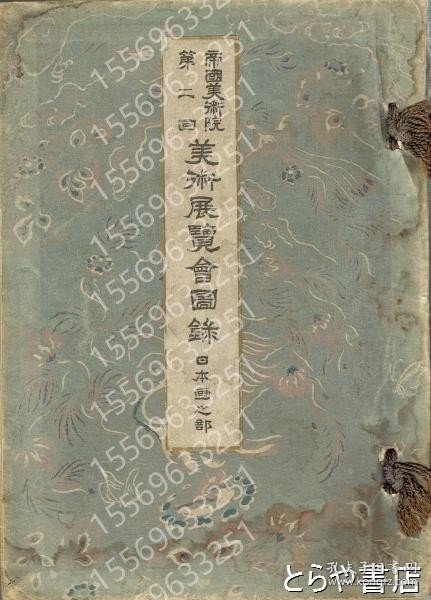 帝國美術院
第二回
美術展覽會圖錄
日本畫之部
15569633251
15569633251
15569633251
15569633251
15569633251
15569633251
15569633251
15569633251
15569633251
15569633251
15569633251
15569633251
とらや書店